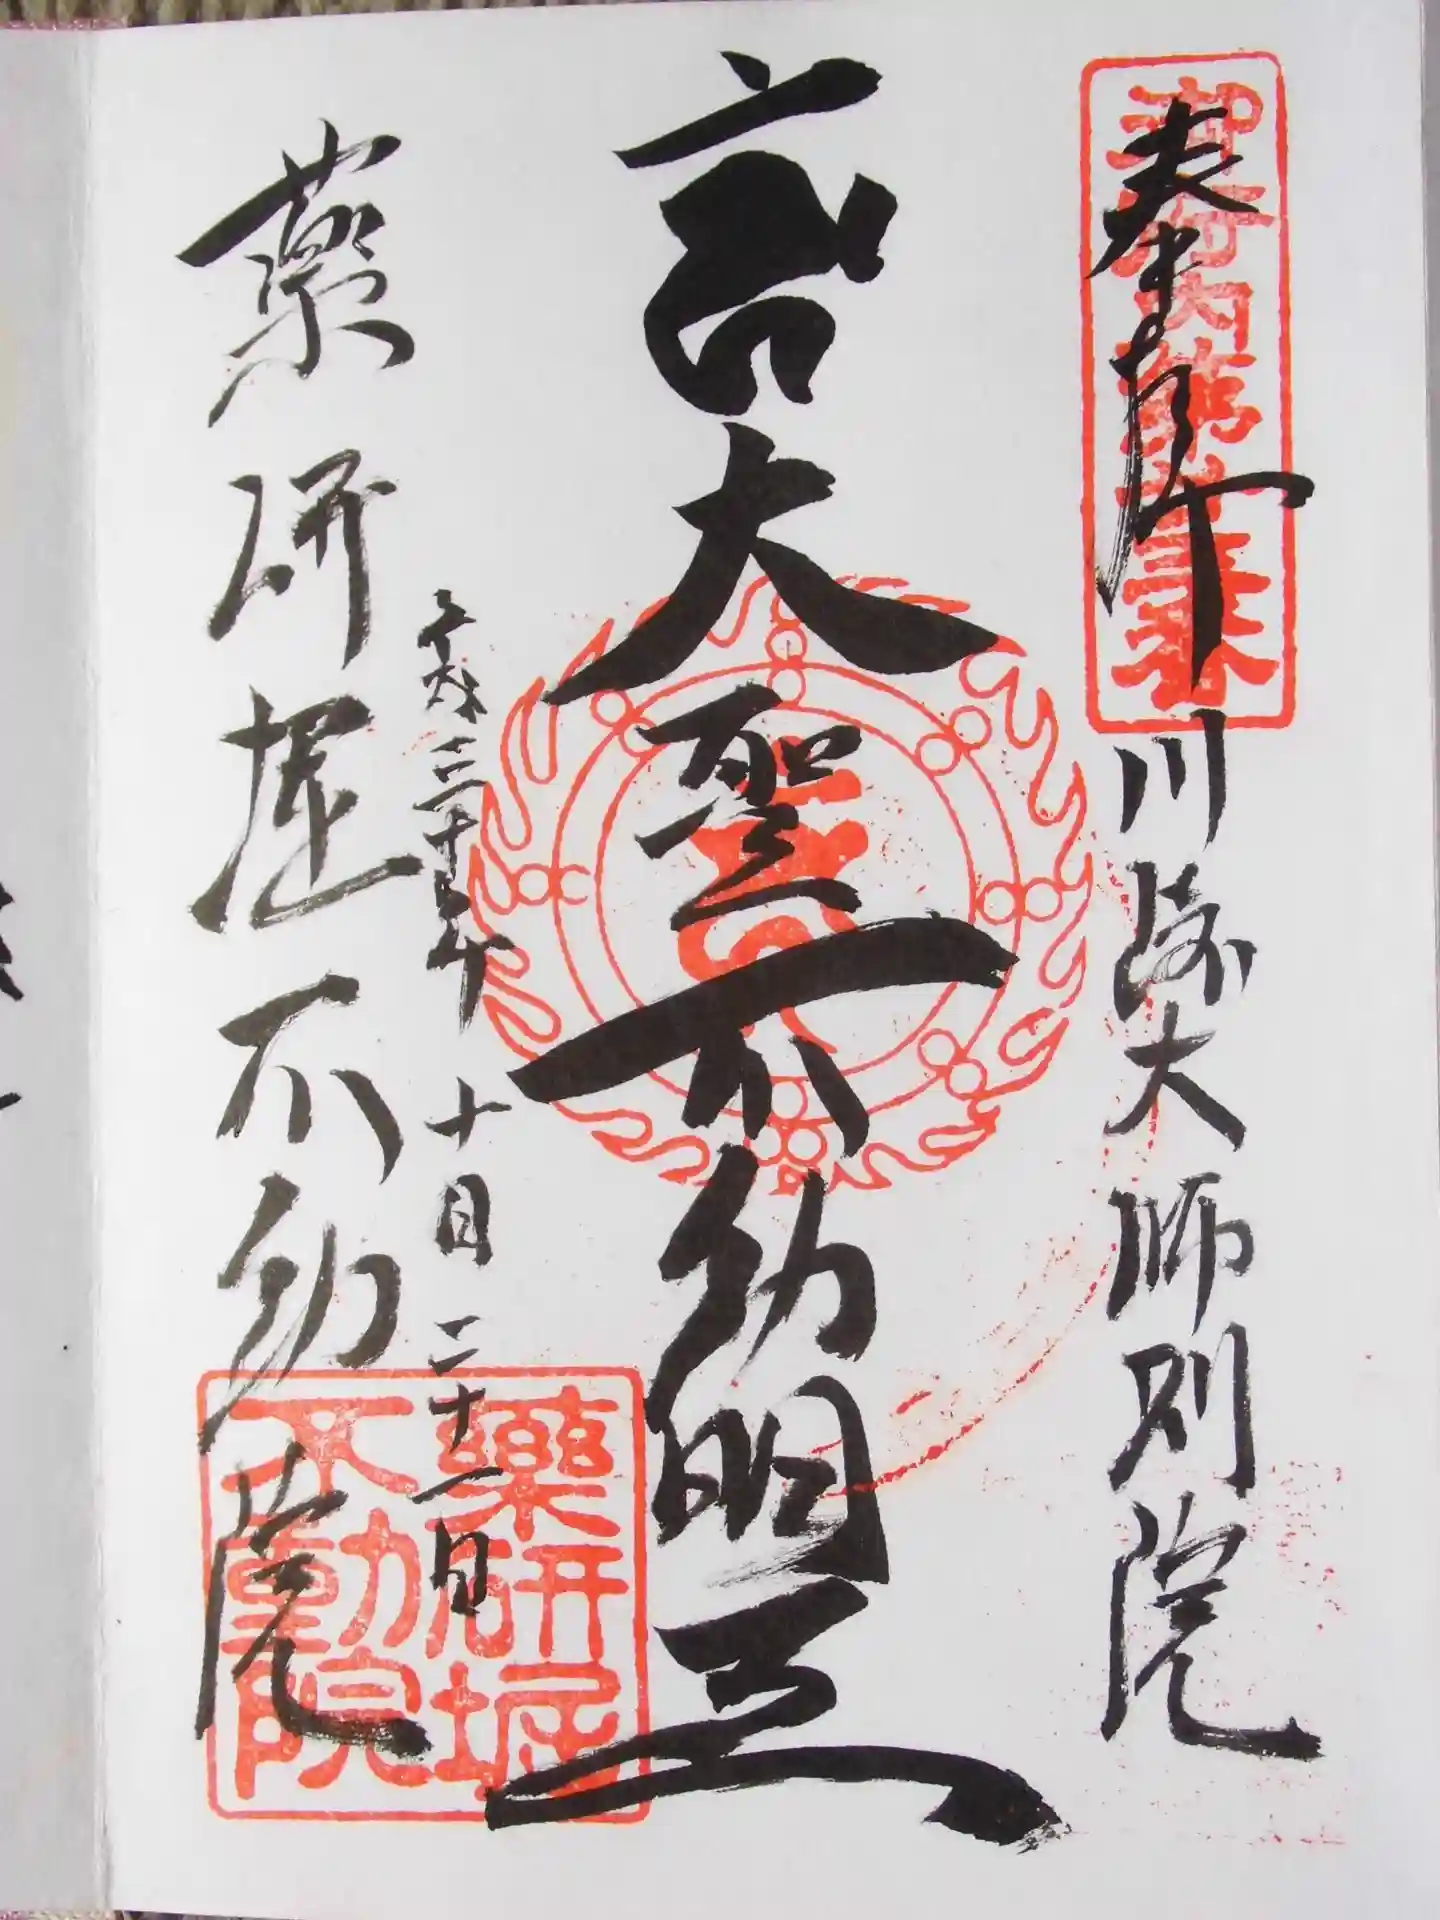 奉拝
御府内第廿三番
川崎大師別院
大聖不動明王
平成三十年 十月二十一日
薬研堀不動院
藥研堀
不動院